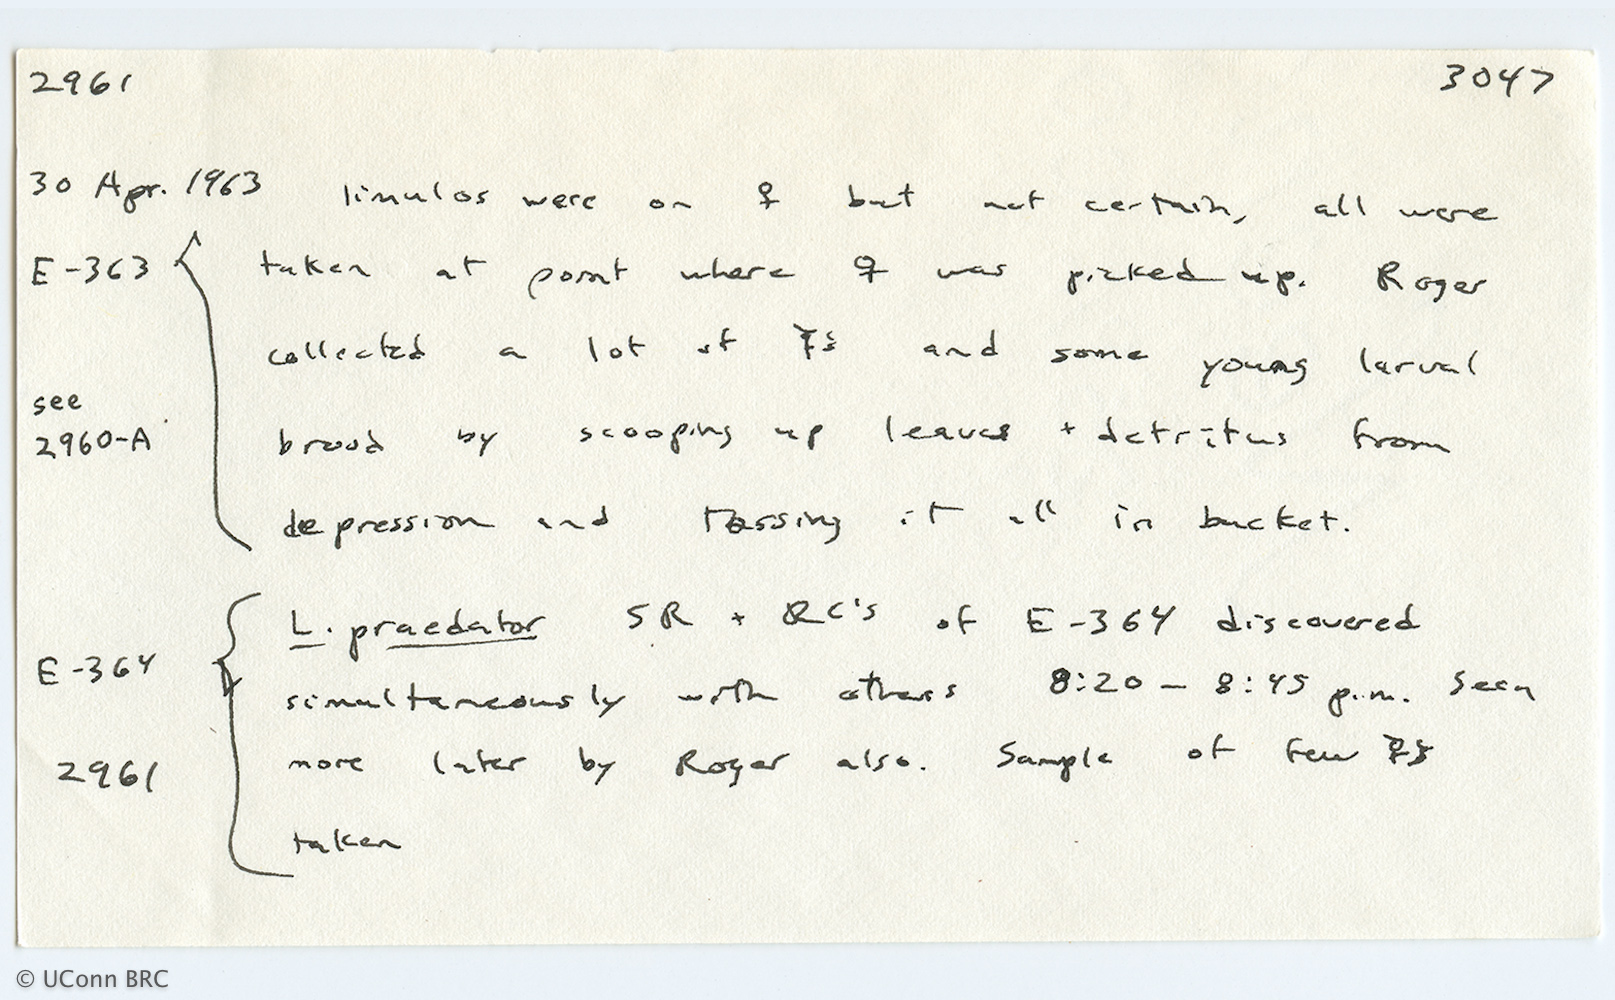 2961 3047
30 Apr. 1963 limulos were on ♀ but not certain, all were
E-363 taken at point where ♀ was picked up. Roger
collected a lot of ☿s and some young larval
see
2960-A brood by scooping up leaves + detritus from
depression and tossing it all in bucket.
L. praedator SR + RC's of E-364 discovered
E-364 simultaneously with others 8:20 - 8:45 p.m. Seen
2961 more later by Roger also. Sample of few ☿s
taken
© UConn BRC